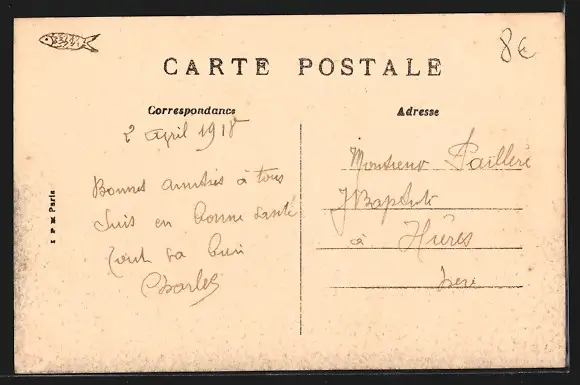 8€
CARTE POSTALE
Correspondance
Adresse
2 april 1918
Bonnes amitiés à tous
Suis en bonne santé
Tout va bien
Charles
Monsieur Pailleré
JBaptiste
à Hières
Isère
Paris